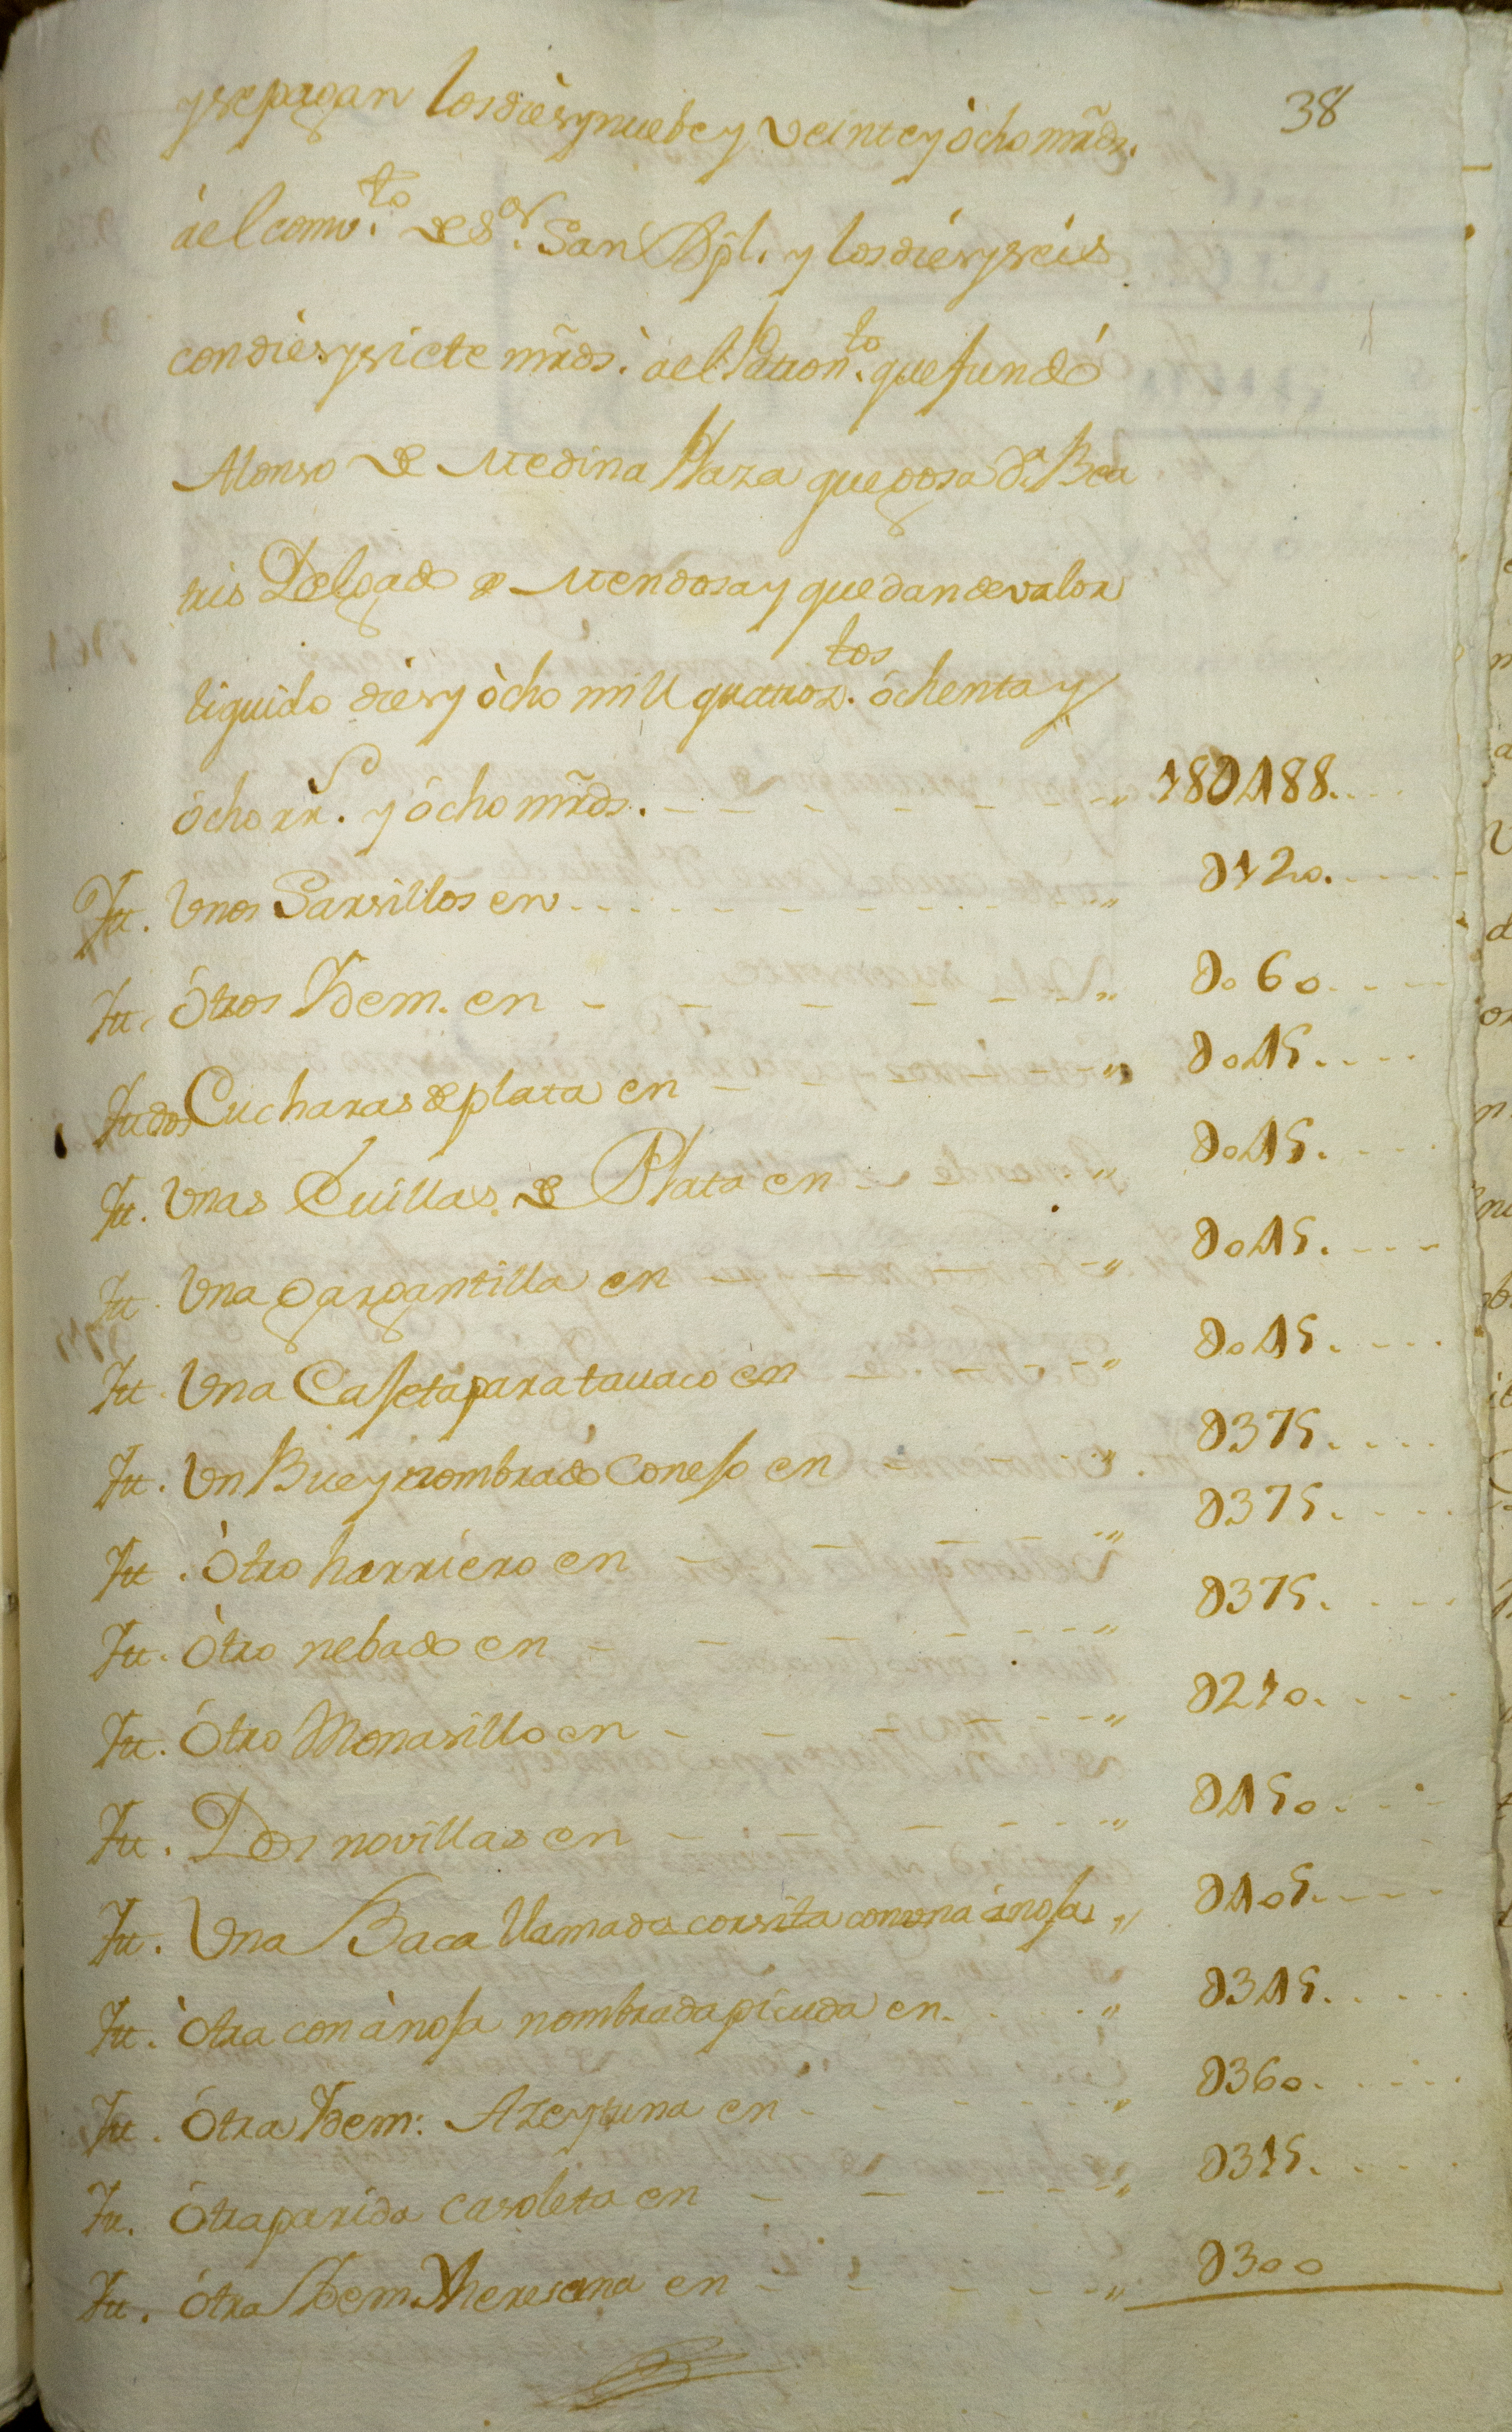 38
y se pagan los diès y nuebe y veinte y òcho mr̃ds.
àel conv.to de S.or San Bpl. y los diès y seis
con diès y siete mr̃ds. àel Patron.to que fundó
Alonso de Medina Plaza que gosa D.ª Bea
tris Delgado de Mendosa y quedan de valor
liquido diès y òcho mill quatroz.tos òchenta y
òcho rr.s y òcho mr̃ds. 18D488.
It. Unos Sarsillos en D120.
It. Otros Idem. en D060.
It dos Cucharas de plata en D045.
It. Unas Evillas de Plata en D045.
It. Una gargantilla en D045.
It. Una Caseta para tauaco en D045.
It. Un Buey nombrado Conejo en D375.
It. Otro harriero en D375.
It. Otro nebado en D375.
It. Otro Monasillo en D210.
It. Dos novillas en D450.
It. Una Baca llamada corsita con una ànoja D405.
It. òtra con ànoja nombrada picuda en D345.
It. Otra Idem: Azeytuna en D360.
It. Otra parida casoleta en D315.
It. òtra Idem Theresana en D300